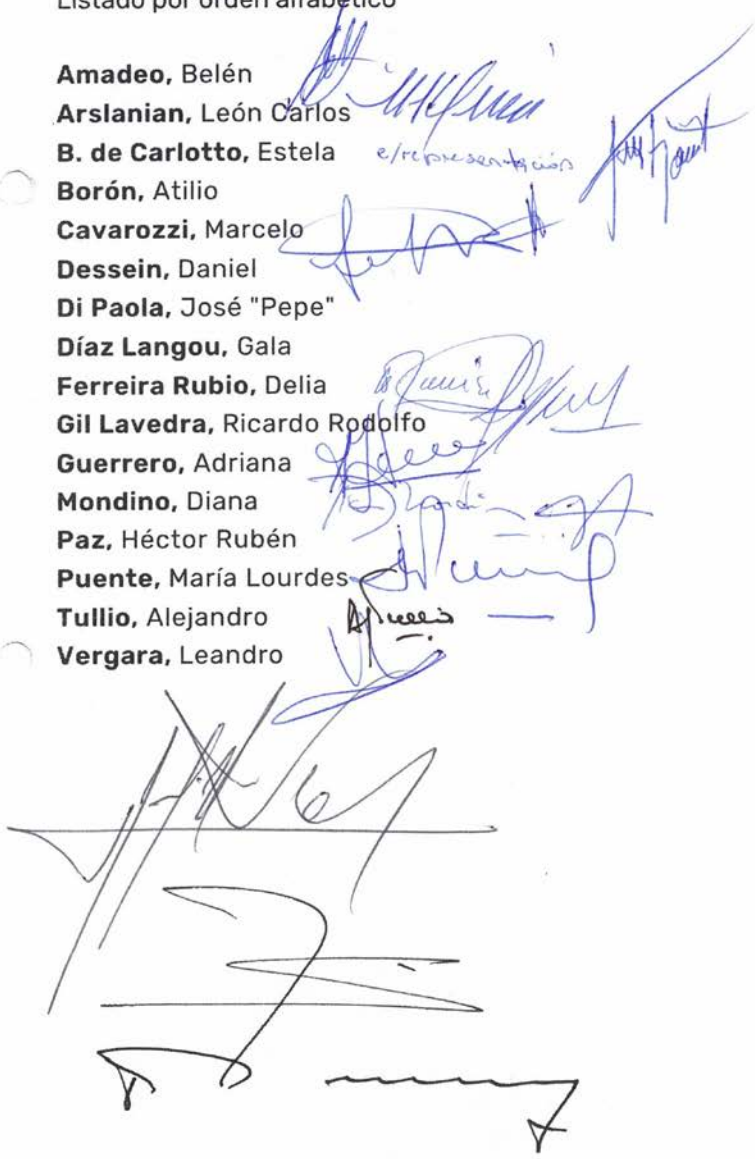 Listado por orden alfabético
Amadeo, Belén
Arslanian, León Carlos
B. de Carlotto, Estela e/representación
Borón, Atilio
Cavarozzi, Marcelo
Dessein, Daniel
Di Paola, José "Pepe"
Díaz Langou, Gala
Ferreira Rubio, Delia
Gil Lavedra, Ricardo Rodolfo
Guerrero, Adriana
Mondino, Diana
Paz, Héctor Rubén
Puente, María Lourdes
Tullio, Alejandro
Vergara, Leandro